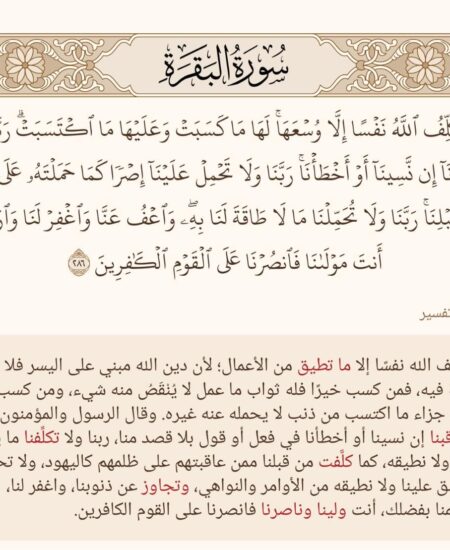 سُورَةُ البَقَرَةِ
ٱللَّهُ نَفْسًا إِلَّا وُسْعَهَاۚ لَهَا مَا كَسَبَتْ وَعَلَيْهَا مَا ٱكْتَسَبَتْۗ
إِن نَّسِينَآ أَوْ أَخْطَأْنَاۚ رَبَّنَا وَلَا تَحْمِلْ عَلَيْنَآ إِصْرًا كَمَا حَمَلْتَهُۥ عَلَى
رَبَّنَا وَلَا تُحَمِّلْنَا مَا لَا طَاقَةَ لَنَا بِهِۦۖ وَٱعْفُ عَنَّا وَٱغْفِرْ لَنَا
أَنتَ مَوْلَىٰنَا فَٱنصُرْنَا عَلَى ٱلْقَوْمِ ٱلْكَٰفِرِينَ ٢٨٦
تفسير
الله نفسًا إلا ما تطيق من الأعمال؛ لأن دين الله مبني على اليسر فلا
فيه، فمن كسب خيرًا فله ثواب ما عمل لا يُنْقَصُ منه شيء، ومن كسب
جزاء ما اكتسب من ذنب لا يحمله عنه غيره. وقال الرسول والمؤمنون
إن نسينا أو أخطأنا في فعل أو قول بلا قصد منا، ربنا ولا تكلِّفنا ما
ولا نطيقه، كما كلِّفت من قبلنا ممن عاقبتهم على ظلمهم كاليهود، ولا
علينا ولا نطيقه من الأوامر والنواهي، وتجاوز عن ذنوبنا، واغفر لنا،
بفضلك، أنت ولينا وناصرنا فانصرنا على القوم الكافرين.